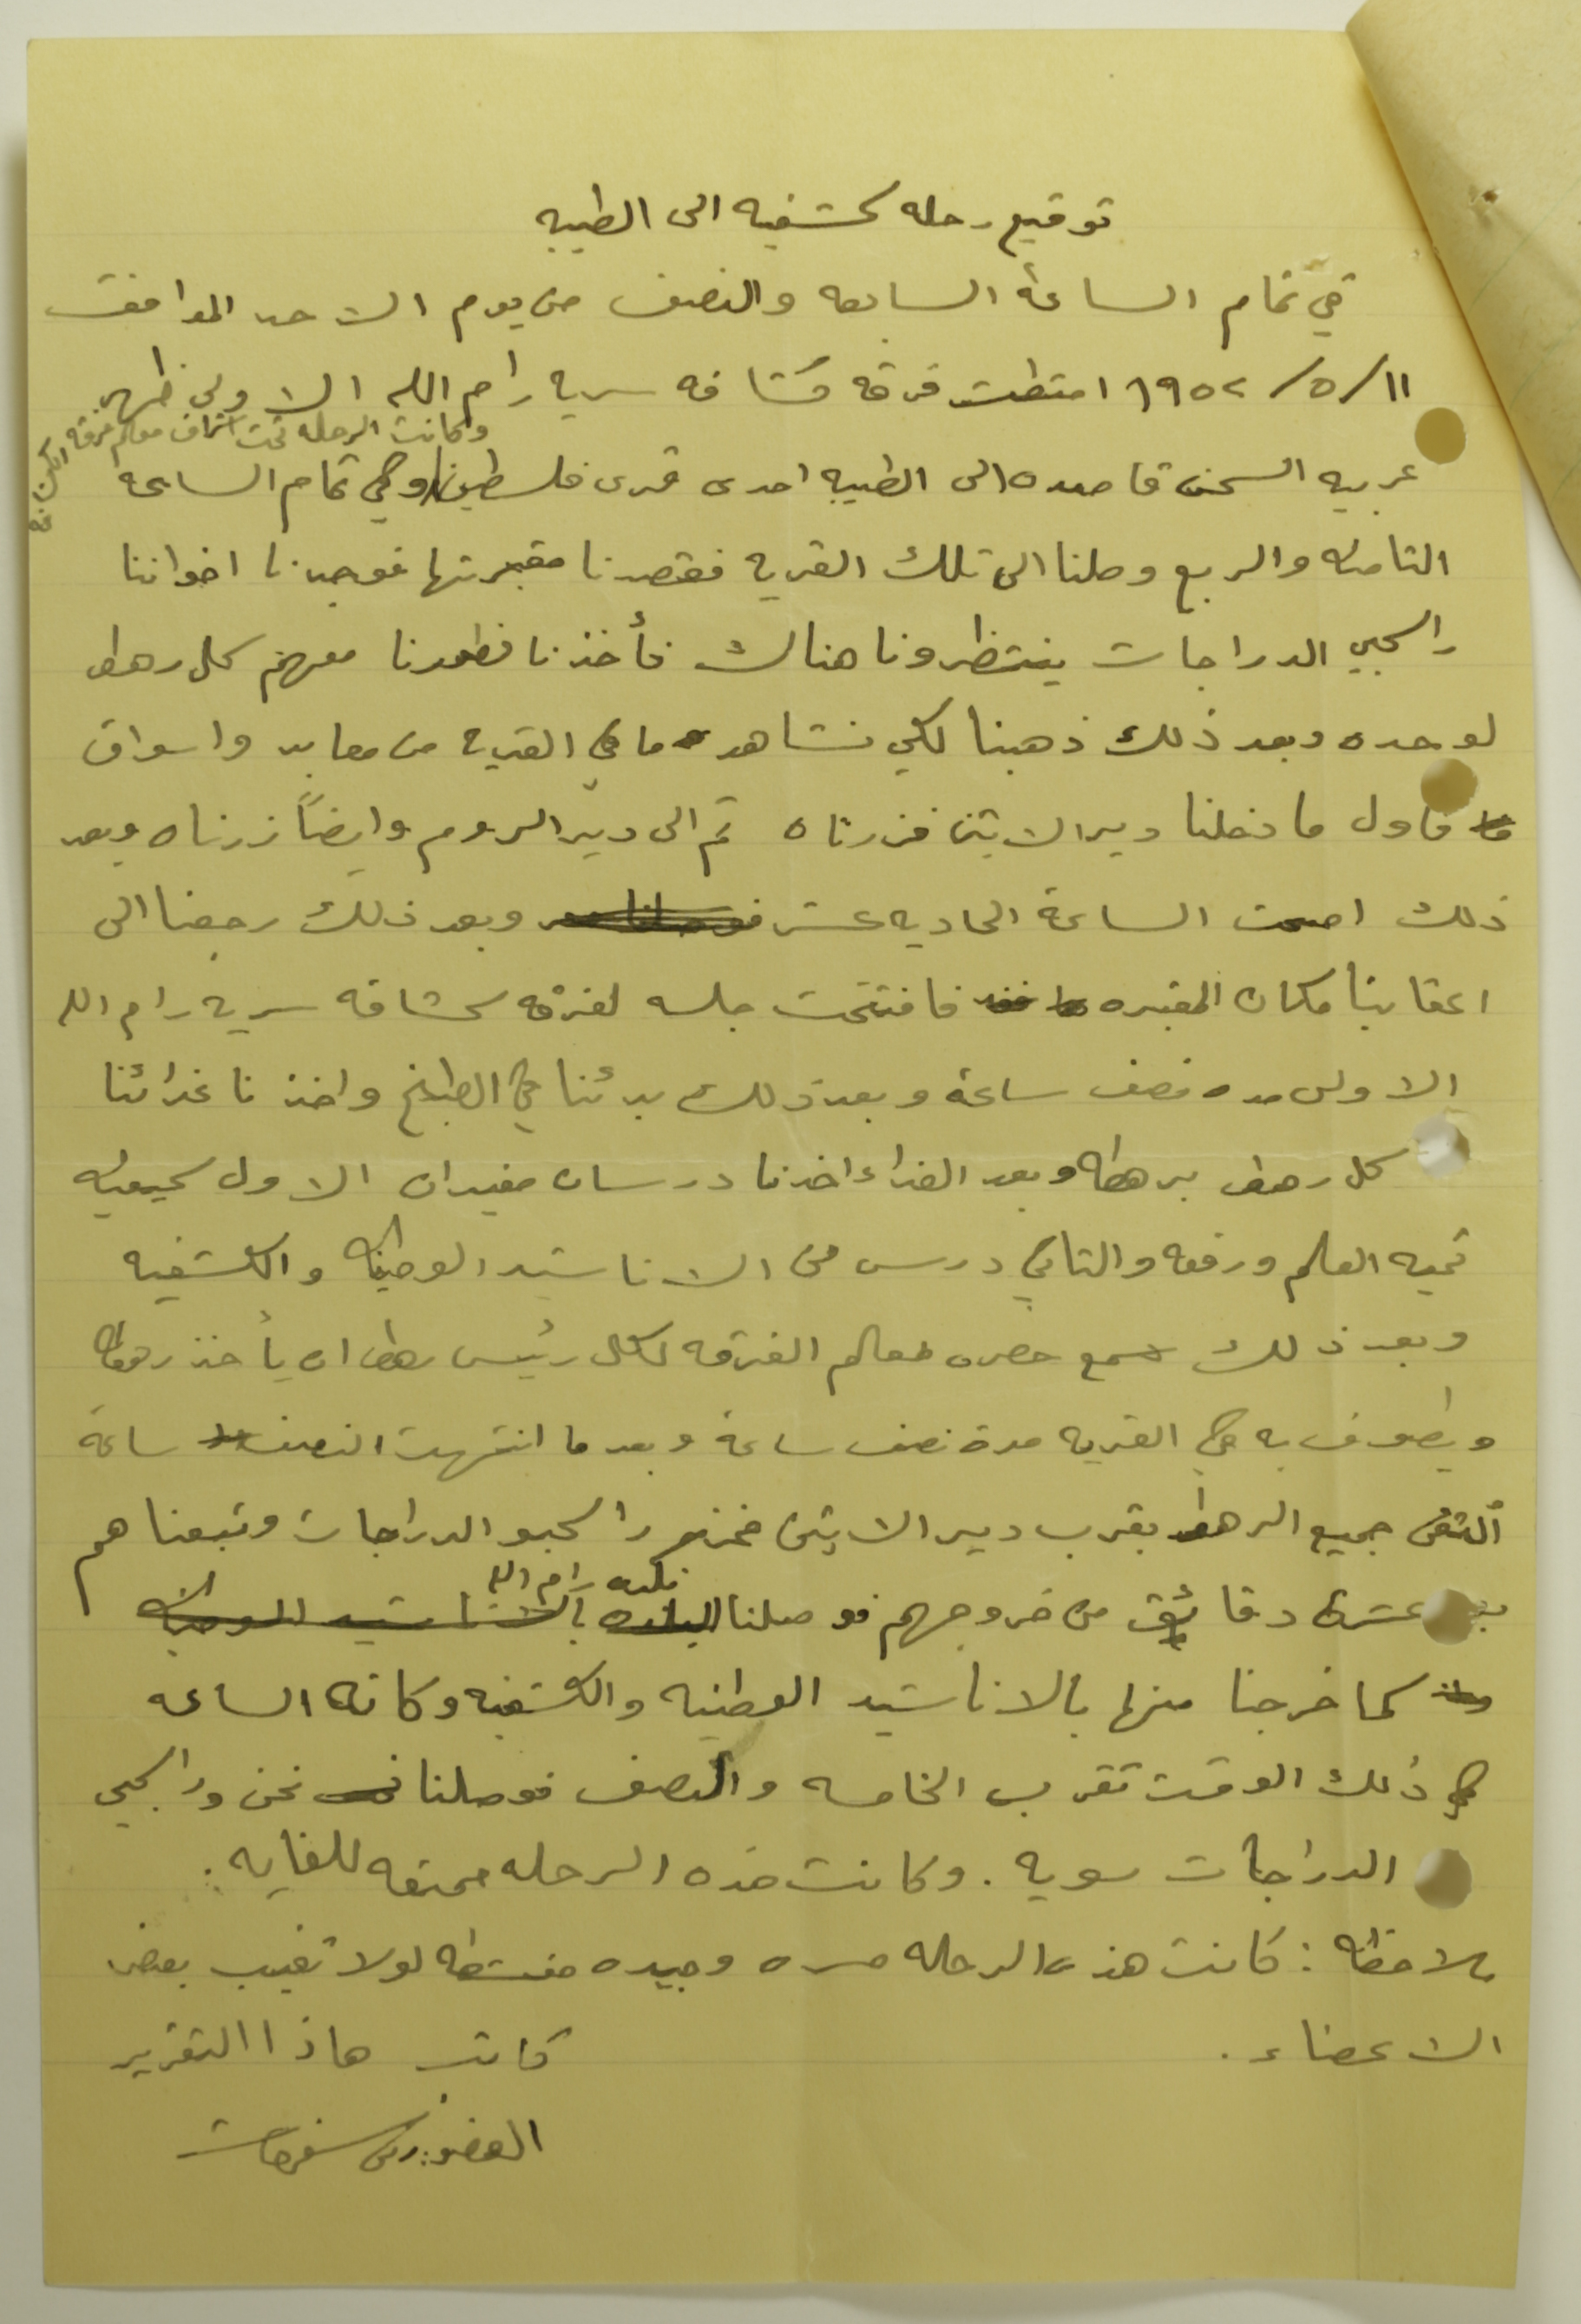 توقيع رحله كشفيه الى الطيبه
في تمام الساعة السابعه والنصف من يوم الاحد الموافق
١١/ ٥/ ١٩٥٢ امتطت فرقة كشافه سريه رام الله الاولى ظهر
وكانت الرحله تحت اشراف معلم فرقه
عربيه السحن قاصده الى الطيبه احدى قرى فلسطين وفي تمام الساعة
الثامنه والربع وصلنا الى تلك القريه فقصدنا مقبرتها فوجدنا اخواننا
راكبي الدراجات ينتظرونا هناك فأخذنا فطورنا معهم كل رهط
لوحده وبعد ذلك ذهبنا لكي نشاهد ما في القريه من معابد واسواق
فاول ما دخلنا دير الاتين فزرناه ثم الى دير الروم وايضاً زرناه وبعد
ذلك اصبحت الساعة الحاديه عشر وبعد ذلك رجعنا الى
اعقابنا مكان المقبره فافتتحت جلسه لفرقه كشافه سريه رام الله
الاولى مده نصف ساعة وبعد ذلك بدئنا في الطبخ واخذنا غدائنا
كل رهط برهطه وبعد الغداء اخذنا درسان مفيدان الاول كيفيه
تحيه العلم ورفعه والثاني درس من الاناشيد الوطنيه والكشفيه
وبعد ذلك سمح حضره معلم الفرقه لكل رئيس رهط ان يأخذ رهطه
ويطوف به في القريه مدة نصف ساعة وبعد ما انتهت النصف ساعة
التقى جميع الرهط بقرب دير الاتين فخرج راكبو الدراجات وتبعناهم
بعد عشرة دقائق من خروجهم فوصلنا البلده بالاناشيد الوطنيه
رام الله
كما خرجنا منها بالاناشيد الوطنيه والكشفيه وكانه الساعه
في ذلك الوقت تقرب الخامسه والنصف فوصلنا نحن وراكبي
الدراجات سويه . وكانت هذه الرحله ممتعه للغايه :
ملاحظه : كانت هذه الرحله مسره وجيده منشطه لولا تغيب بعض
الاعضاء .
كاتب هاذا التقرير
العضو :